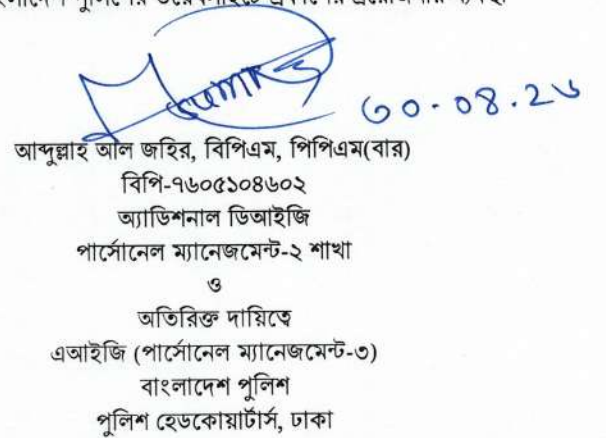 ৩০.০৪.২৬
আব্দুল্লাহ আল জহির, বিপিএম, পিপিএম(বার)
বিপি-৭৬০৫১০৪৬০২
অ্যাডিশনাল ডিআইজি
পার্সোনেল ম্যানেজমেন্ট-২ শাখা
ও
অতিরিক্ত দায়িত্বে
এআইজি (পার্সোনেল ম্যানেজমেন্ট-৩)
বাংলাদেশ পুলিশ
পুলিশ হেডকোয়ার্টার্স, ঢাকা